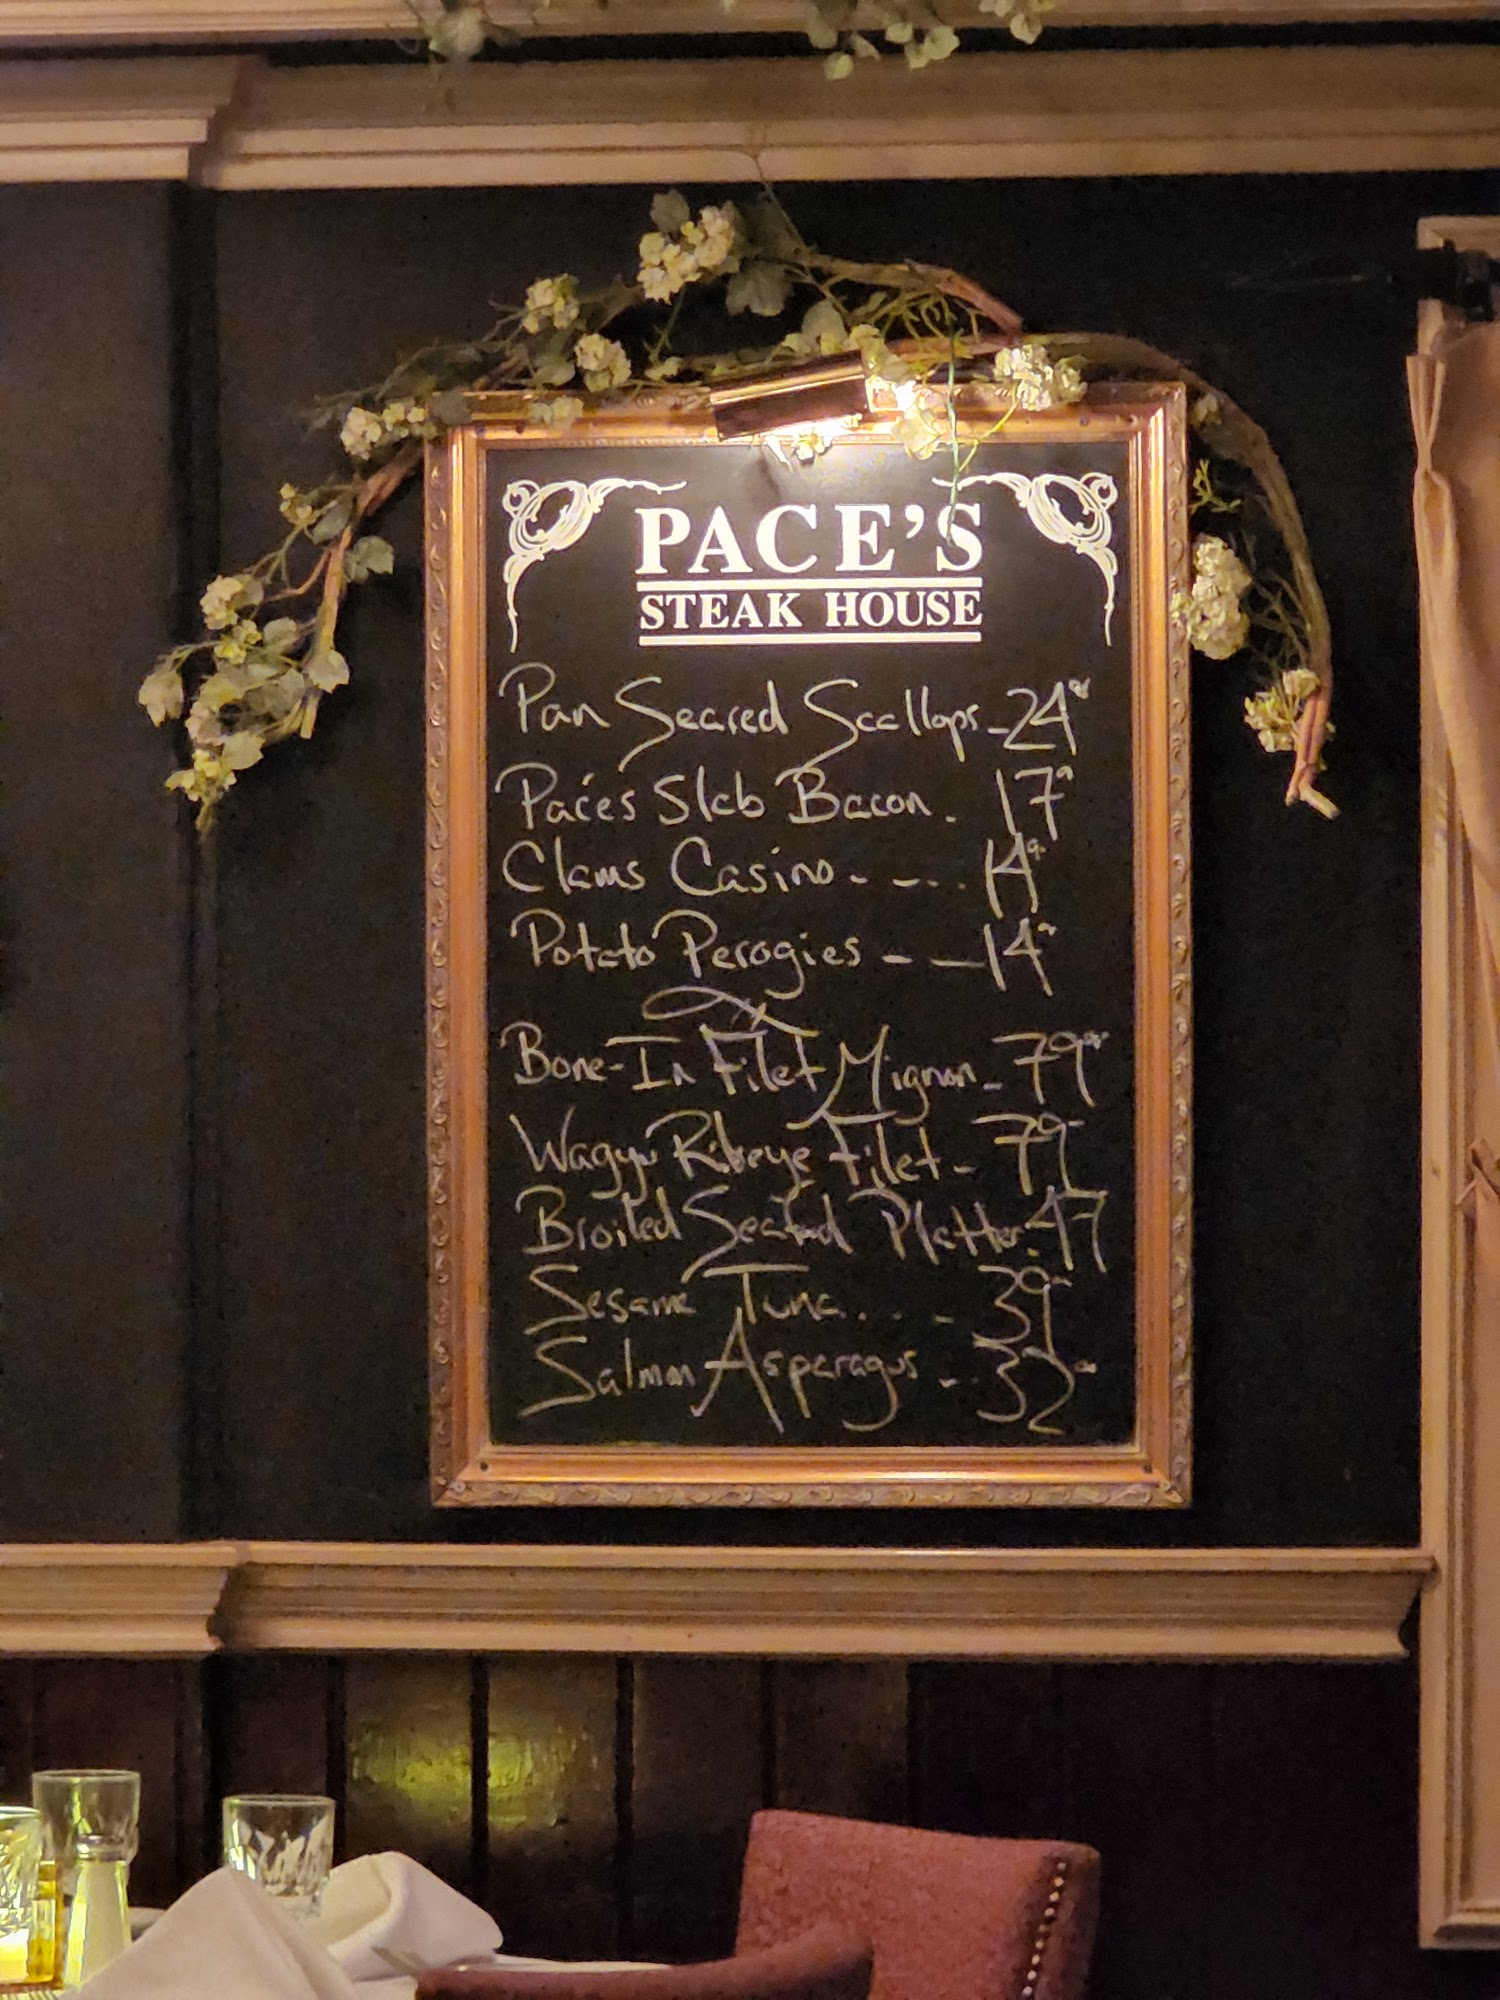 PACE'S
STEAK HOUSE
Pan Seared Scallops - 24
Pace's Slab Bacon. 17
Clams Casino - - ... 14
Potato Perogies - - 14
Bone-In Filet Mignon - 79
Wagyu Ribeye Filet - 79
Broiled Seafood Platter. 47
Sesame Tuna. . . - 39
Salmon Asparagus - .. 32